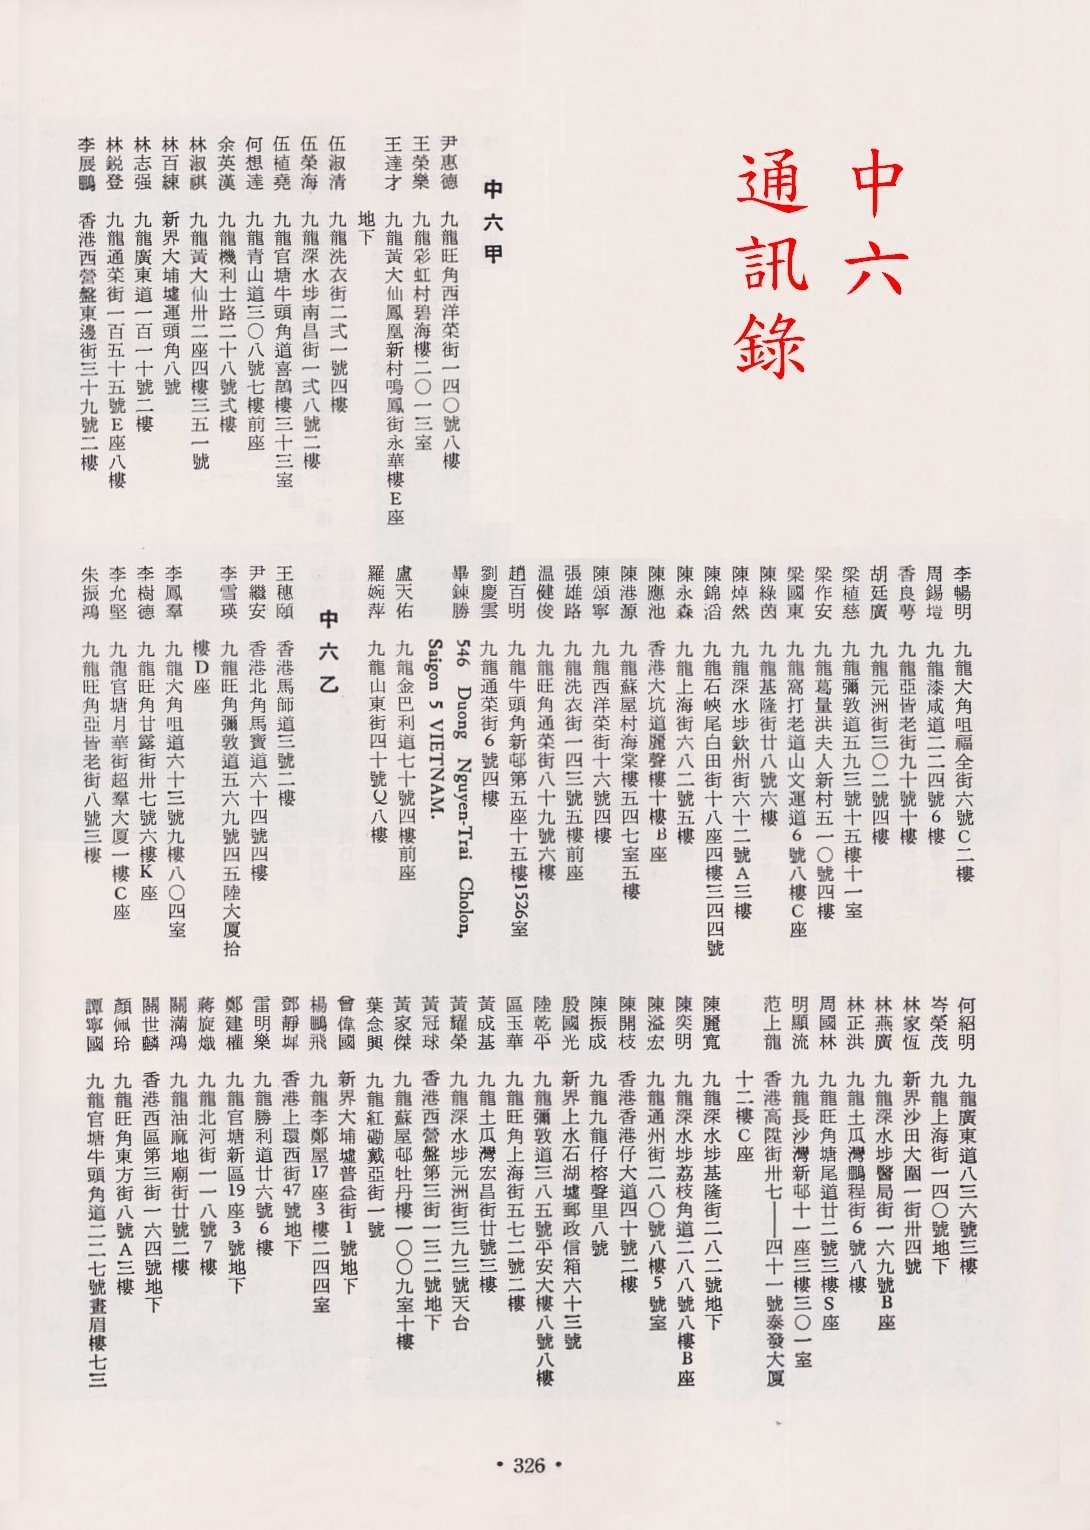 中六
通訊錄
中六甲
尹惠德 九龍旺角西洋菜街一四〇號八樓
王榮樂 九龍彩虹村碧海樓二〇一三室
王達才 九龍黃大仙鳳凰新村鳴鳳街永華樓E座
地下
伍淑清 九龍洗衣街二弍一號四樓
伍榮海 九龍深水埗南昌街一弍八號二樓
伍植堯 九龍官塘牛頭角道喜鵲樓三十三室
何想達 九龍青山道三〇八號七樓前座
余英漢 九龍機利士路二十八號弍樓
林淑祺 九龍黃大仙卅二座四樓三五一號
林百練 新界大埔墟運頭角八號
林志强 九龍廣東道一百一十號二樓
林銳登 九龍通菜街一百五十五號E座八樓
李展鵬 香港西營盤東邊街三十九號二樓
李暢明 九龍大角咀福全街六號C二樓
周錫塏 九龍漆咸道二二四號6樓
香良萼 九龍亞皆老街九十號十樓
胡廷廣 九龍元洲街三〇二號四樓
梁植慈 九龍彌敦道五九三號十五樓十一室
梁作安 九龍葛量洪夫人新村五一〇號四樓
梁國東 九龍窩打老道山文運道6號八樓C座
陳綠茵 九龍基隆街廿八號六樓
陳焯然 九龍深水埗欽州街六十二號A三樓
陳錦滔 九龍石峽尾白田街十八座四樓三四四號
陳永森 九龍上海街六八二號五樓
陳應池 香港大坑道麗聲樓十樓B座
陳港源 九龍蘇屋村海棠樓五四七室五樓
陳頌寧 九龍西洋菜街十六號四樓
張雄路 九龍洗衣街一四三號五樓前座
温健俊 九龍旺角通菜街八十九號六樓
趙百明 九龍牛頭角新邨第五座十五樓1526室
劉慶雲 九龍通菜街6號四樓
畢鍊勝 546 Duong Nguyen-Trai Cholon,
Saigon 5 VIETNAM.
盧天佑 九龍金巴利道七十號四樓前座
羅婉萍 九龍山東街四十號Q八樓
中六乙
王穗頤 香港馬師道三號二樓
尹繼安 香港北角馬寶道六十四號四樓
李雪瑛 九龍旺角彌敦道五六九號四五陸大厦拾
樓D座
李鳳羣 九龍大角咀道六十三號九樓八〇四室
李樹德 九龍旺角甘露街卅七號六樓K座
李允堅 九龍官塘月華街超羣大厦一樓C座
朱振鴻 九龍旺角亞皆老街八號三樓
何紹明 九龍廣東道八三六號三樓
岑榮茂 九龍上海街一四〇號地下
林家恆 新界沙田大圍一街卅四號
林燕廣 九龍深水埗醫局街一六九號B座
林正洪 九龍土瓜灣鵬程街6號八樓
周國林 九龍旺角塘尾道廿二號三樓S座
明顯流 九龍長沙灣新邨十一座三樓三〇一室
范上龍 香港高陞街卅七——四十一號泰發大厦
十二樓C座
陳麗寬 九龍深水埗基隆街二八二號地下
陳奕明 九龍深水埗荔枝角道二八八號八樓B座
陳溢宏 九龍通州街二八〇號八樓5號室
陳開枝 香港香港仔大道四十號二樓
陳振成 九龍九龍仔榕聲里八號
殷國光 新界上水石湖墟郵政信箱六十三號
陸乾平 九龍彌敦道三八五號平安大樓八號八樓
區玉華 九龍旺角上海街五七二號二樓
黃成基 九龍土瓜灣宏昌街廿號三樓
黃耀榮 九龍深水埗元洲街三九三號天台
黃冠球 香港西營盤第三街一三二號地下
黃家傑 九龍蘇屋邨牡丹樓一〇〇九室十樓
葉念興 九龍紅磡戴亞街一號
曾偉國 新界大埔墟普益街1號地下
楊鵬飛 九龍李鄭屋17座3樓二四四室
鄧靜墀 香港上環西街47號地下
雷明樂 九龍勝利道廿六號6樓
鄭建權 九龍官塘新區19座3號地下
蔣旋熾 九龍北河街一一八號7樓
關滿鴻 九龍油麻地廟街廿號二樓
關世麟 香港西區第三街一六四號地下
顏佩玲 九龍旺角東方街八號A三樓
譚寧國 九龍官塘牛頭角道二二七號畫眉樓七三
• 326 •